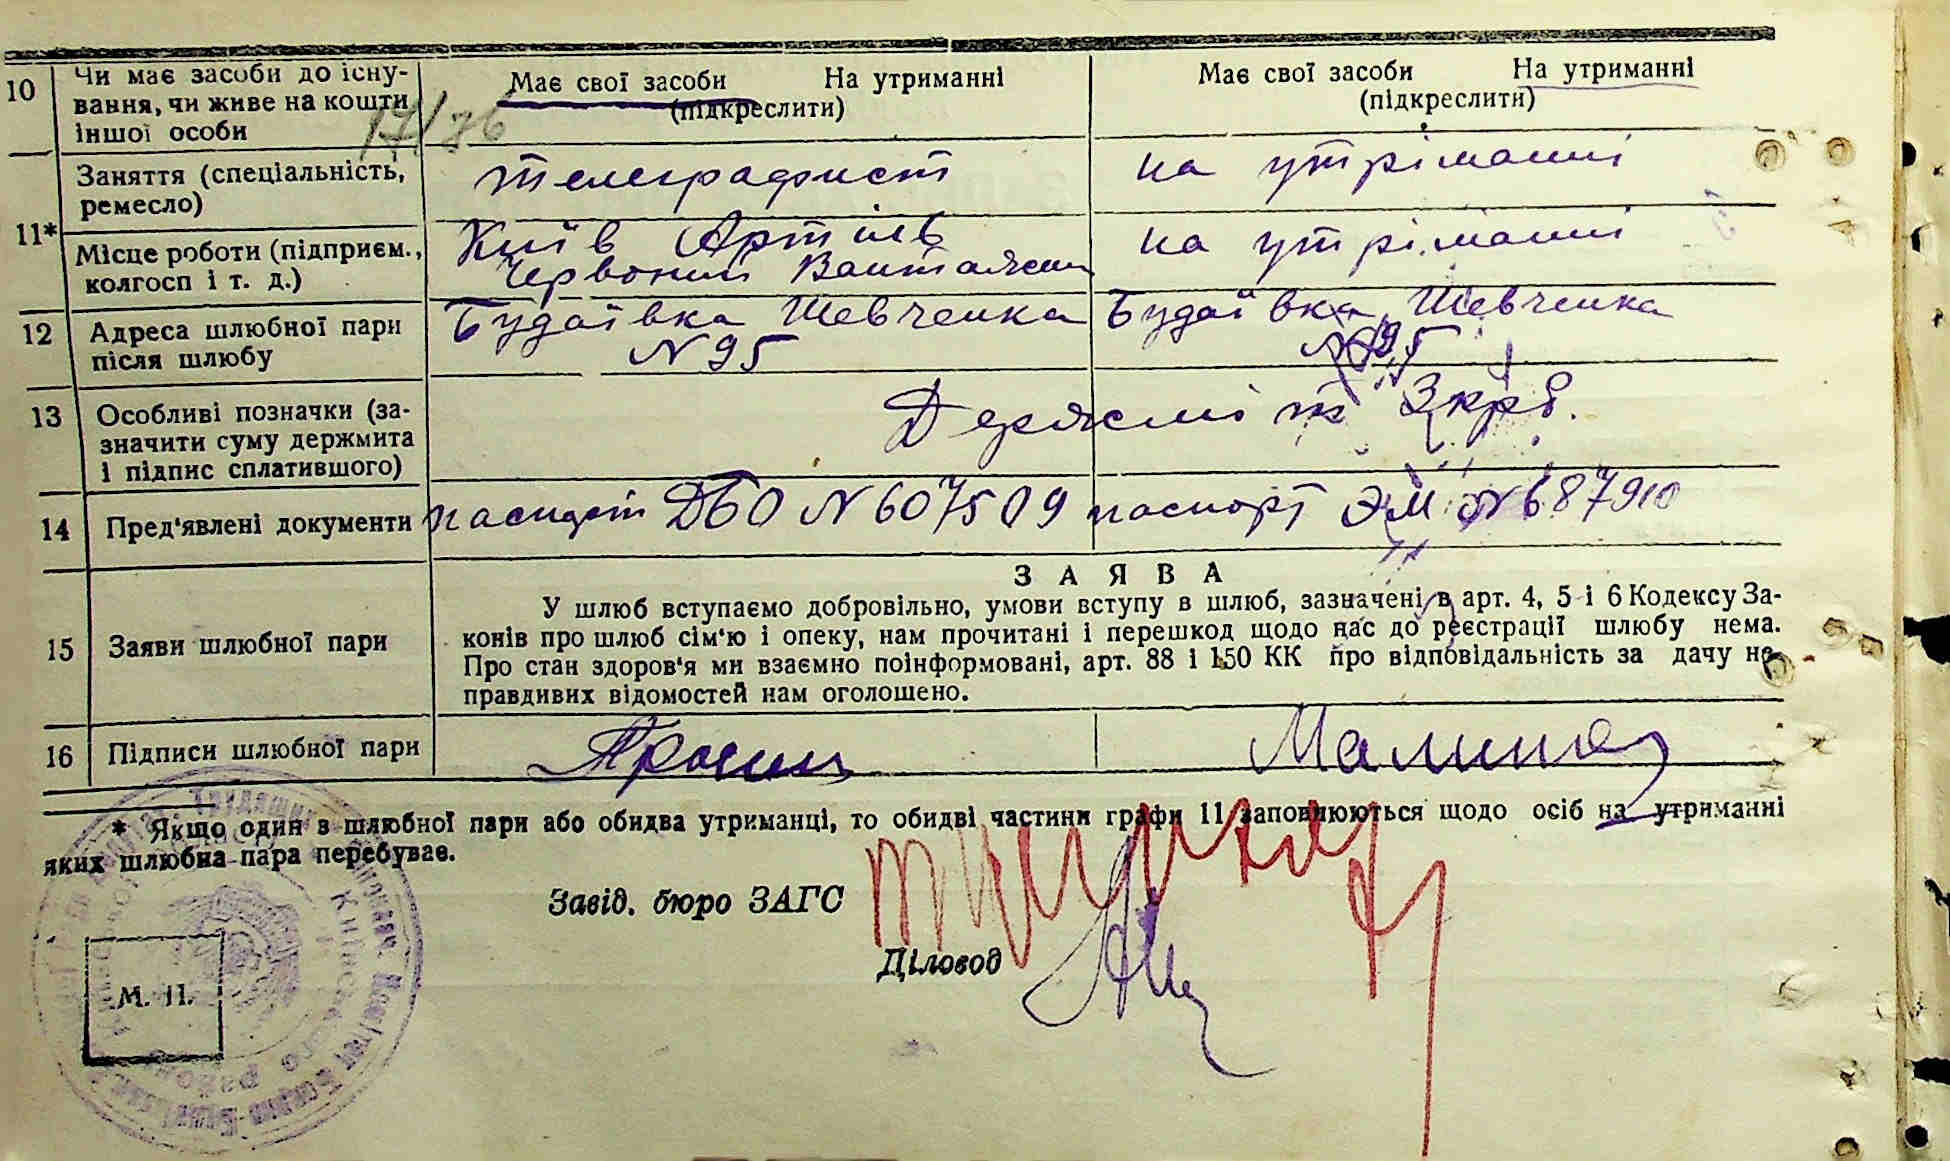 10 Чи має засоби до існу-
вання, чи живе на кошти
іншої особи
Має свої засоби На утриманні
(підкреслити)
Має свої засоби На утриманні
(підкреслити)
17/76
11*
Заняття (спеціальність,
ремесло)
телеграфист
на утріманні
Місце роботи (підприєм.,
колгосп і т. д.)
Київ Артіль
Червоний
на утріманні
12 Адреса шлюбної пари
після шлюбу
Будаївка Шевченка
N 95
Будаївка Шевченка
N 95
13 Особливі позначки (за-
значити суму держмита
і підпис сплатившого)
Держміт 3 крб.
14 Пред'явлені документи
паспорт ДБО N 607509
паспорт ЭМ N 687910
15 Заяви шлюбної пари
ЗАЯВА
У шлюб вступаємо добровільно, умови вступу в шлюб, зазначені в арт. 4, 5 і 6 Кодексу За-
конів про шлюб сім'ю і опеку, нам прочитані і перешкод щодо нас до реєстрації шлюбу нема.
Про стан здоров'я ми взаємно поінформовані, арт. 88 і 150 КК про відповідальність за дачу не-
правдивих відомостей нам оголошено.
16 Підписи шлюбної пари
* Якщо один з шлюбної пари або обидва утриманці, то обидві частини графи 11 заповнюються щодо осіб на утриманні
яких шлюбна пара перебуває.
Завід. бюро ЗАГС
Діловод
М. П.